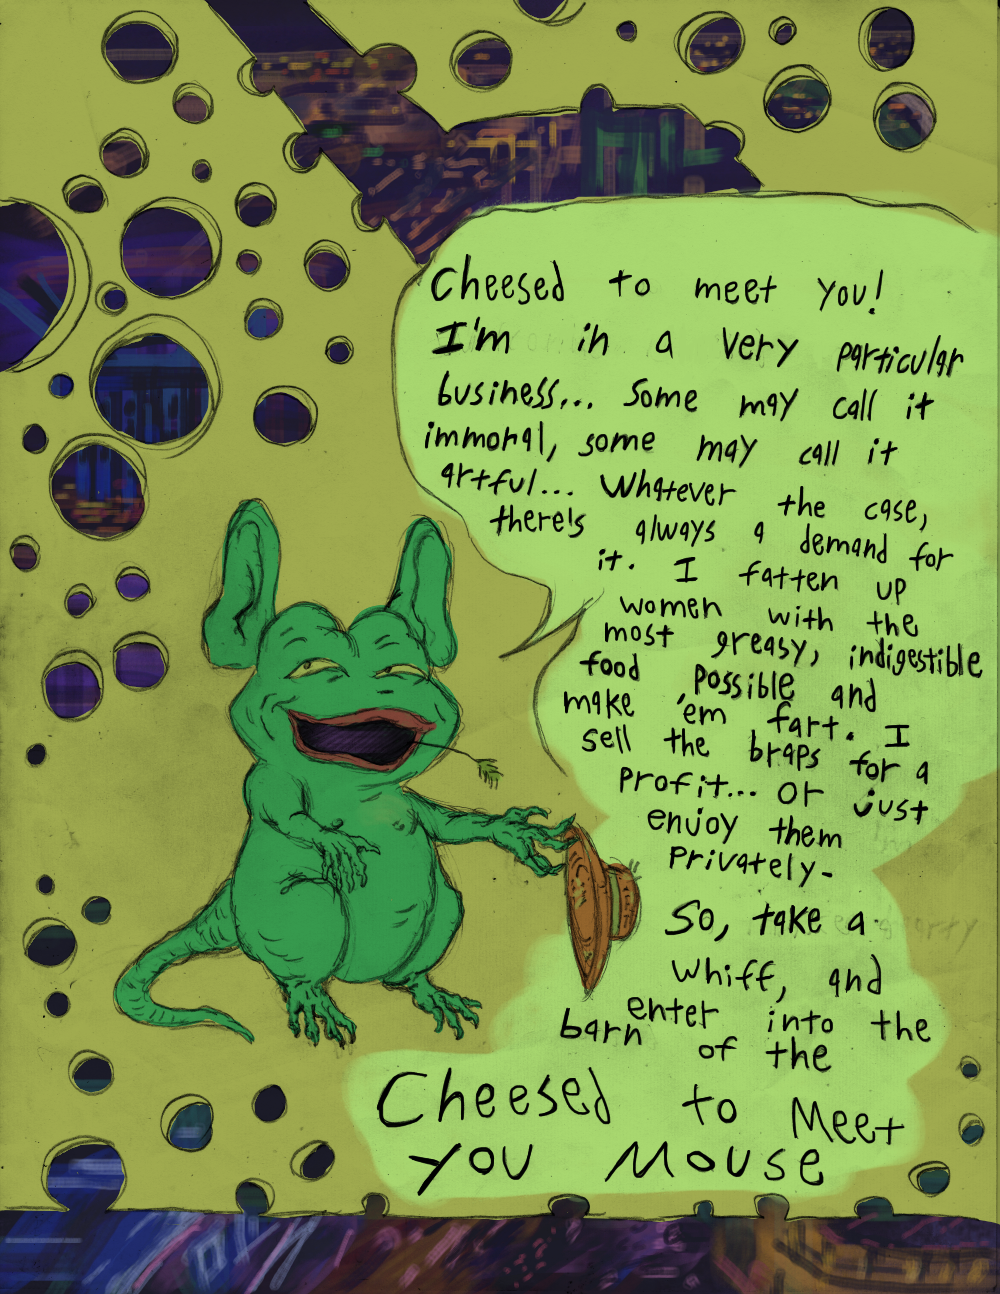 Cheesed to meet you!
I'm in a very particular
business... Some may call it
immoral, some may call it
artful... Whatever the case,
there's always a demand for
it. I fatten up
women with the
most greasy, indigestible
food possible and
make 'em fart. I
sell the braps for a
profit... or just
enjoy them
privately-
So, take a
whiff, and
enter into the
barn of the
Cheesed to Meet
You Mouse